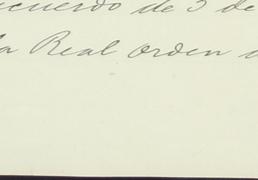 cuerdo de 3 de
la Real orden